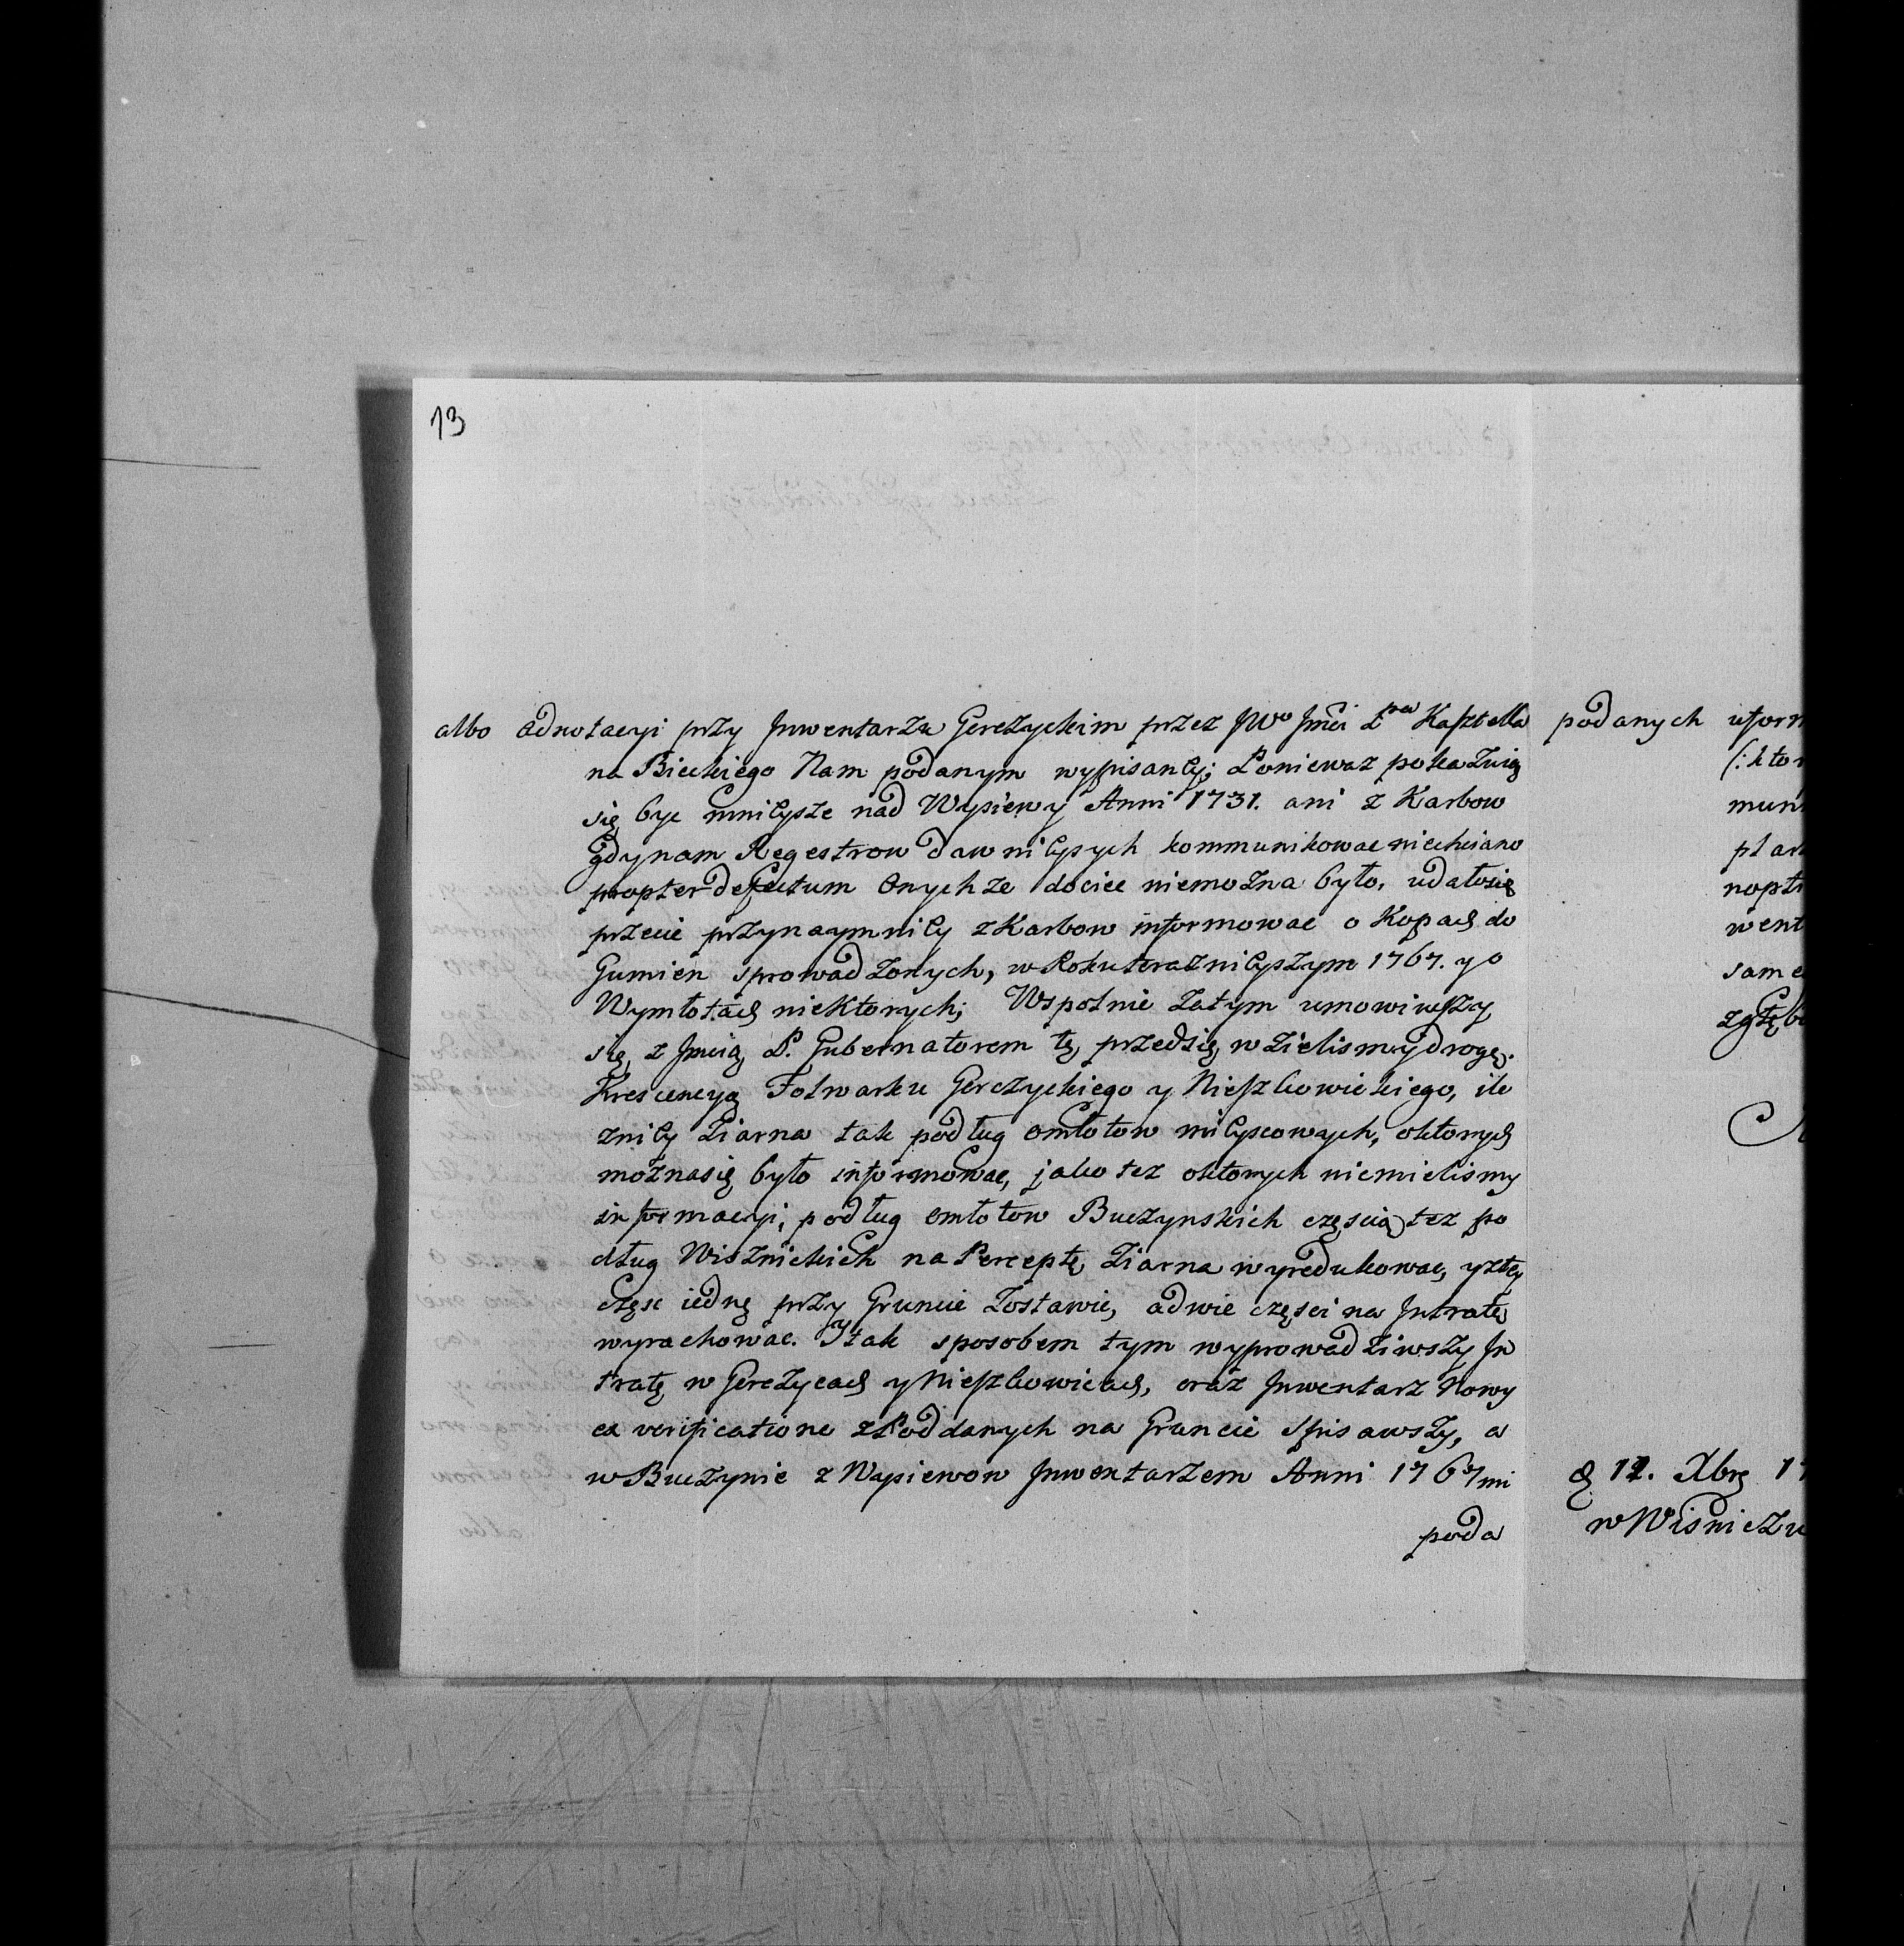 13
albo adnotacyi przy Inwentarzu Gerczyckim przez JWo Jmci Pna Kasztella
na Bieckiego Nam podanym wypisaney; Poniewaz pokazuią
się byc mnieysze nad Wysiewy Anni 1731. ani z Karbow
gdy nam Regestrow dawnieyszych kommunikowac niechciano
propter defectum onychze dociec niemozna było, udało się
przecie przynaymniey z Karbow informowac o Kopach do
Gumien sprowadzonych, w Roku teraznieyszym 1767. y o
Wymłotach niektorych; Wspolnie zatym umowiwszy
się z Jmcią P. Gubernatorem tę przedsię wzielismy drogę.
Krescencyą Folwarku Gerczyckiego y Nieszkowickiego, ile
zniey Ziarna tak podług omłotow mieyscowych, oktorych
moznasię było informowac, jako tez oktorych niemielismy
informacyi, podług omłotow Buczynskich częscią tez po
dług Wisznickich na Perceptę Ziarna wyredukowac, yztey
częsc iednę przy Gruncie Zostawic, adwie częsci na Intratę
wyrachowac. Itak sposobem tym wyprowadziwszy In
tratę w Gerczycach y Nieszkowicach, oraz Inwentarz Nowy
ex verificatione z Poddanych na Gruncie Spisawszy, a
w Buczynie z Wysiewow Inwentarzem Anni 1767mi
poda
podanych uform
(: ktor
mun
plan
nopt
went
sam e
zgłęb
12. Xbrę 17
w Wisniczu